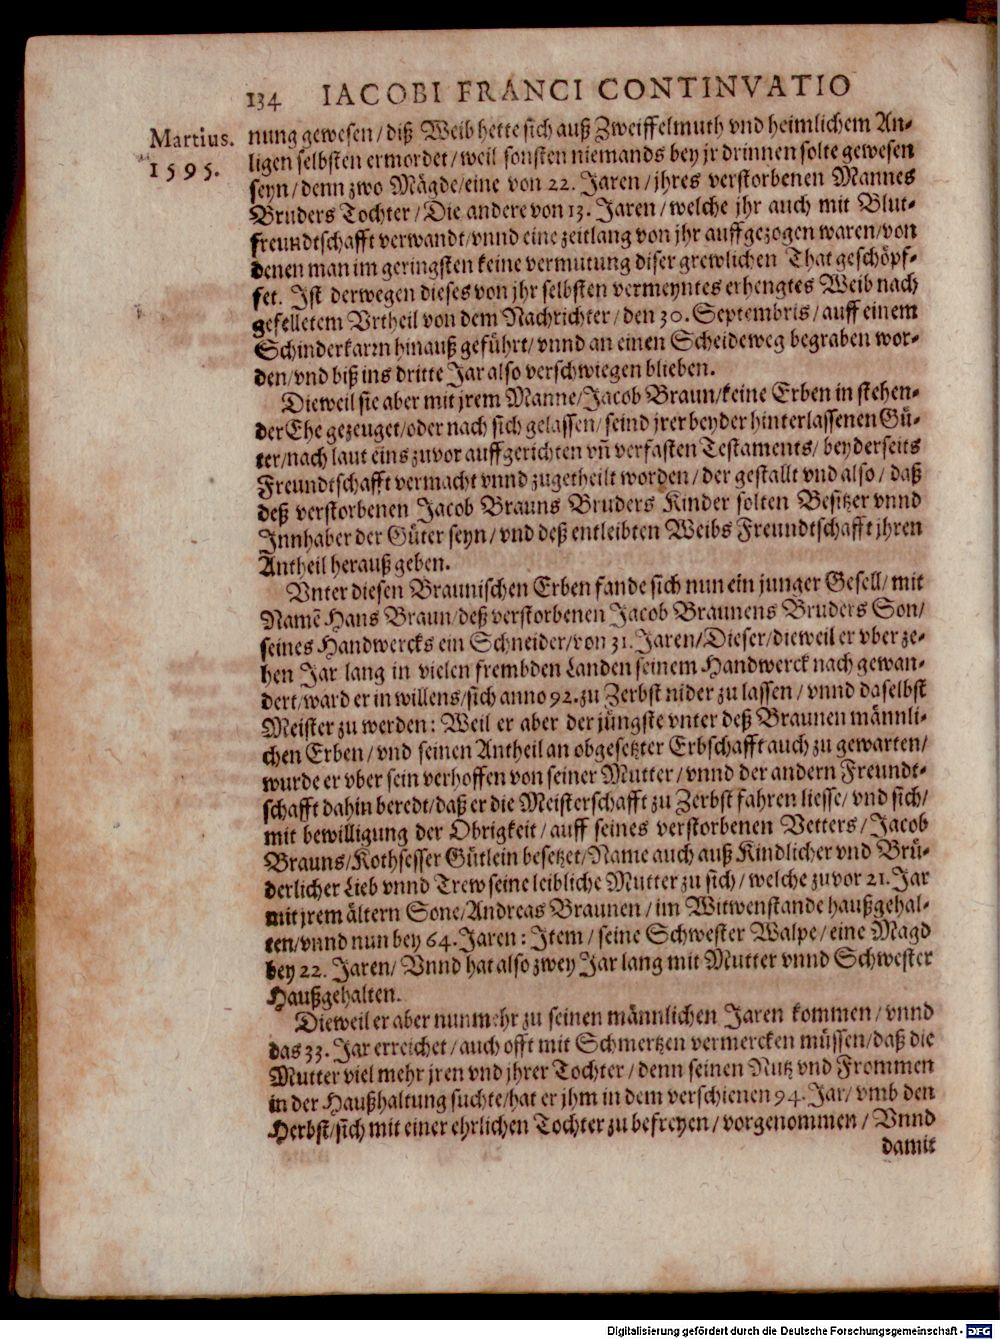 134 IACOBI FRANCI CONTINVATIO
Martius.
1595.
nung gewesen/ diß Weib hette sich auß Zweiffelmuth vnd heimlichem An-
ligen selbsten ermordet/ weil sonsten niemands bey jr drinnen solte gewesen
seyn/ denn zwo Mägde/eine von 22. Jaren/ jhres verstorbenen Mannes
Bruders Tochter/ Die andere von 13. Jaren/ welche jhr auch mit Blut-
freundtschafft verwandt/vnnd eine zeitlang von jhr auffgezogen waren/von
denen man im geringsten keine vermutung diser grewlichen That geschöpf-
fet. Ist derwegen dieses von jhr selbsten vermeyntes erhengtes Weib nach
gefelletem Vrtheil von dem Nachrichter/ den 30. Septembris/ auff einem
Schinderkarrn hinauß geführt/ vnnd an einen Scheideweg begraben wor-
den/vnd biß ins dritte Jar also verschwiegen blieben.
Dieweil sie aber mit jrem Manne/Jacob Braun/keine Erben in stehen-
der Ehe gezeuget/oder nach sich gelassen/ seind jrer beyder hinterlassenen Gü-
ter/nach laut eins zuvor auffgerichten vñ verfasten Testaments/ beyderseits
Freundtschafft vermacht vnnd zugetheilt worden/ der gestallt vnd also/ daß
deß verstorbenen Jacob Brauns Bruders Kinder solten Besitzer vnnd
Innhaber der Güter seyn/ vnd deß entleibten Weibs Freundtschafft jhren
Antheil herauß geben.
Vnter diesen Braunischen Erben fande sich nun ein junger Gesell/ mit
Namẽ Hans Braun/deß verstorbenen Jacob Braunens Bruders Son/
seines Handwercks ein Schneider/von 31. Jaren/Dieser/dieweil er vber ze-
hen Jar lang in vielen frembden Landen seinem Handwerck nach gewan-
dert/ward er in willens/sich anno 92. zu Zerbst nider zu lassen/ vnnd daselbst
Meister zu werden: Weil er aber der jüngste vnter deß Braunen männli-
chen Erben/ vnd seinen Antheil an obgesetzter Erbschafft auch zu gewarten/
wurde er vber sein verhoffen von seiner Mutter/ vnnd der andern Freundt-
schafft dahin beredt/daß er die Meisterschafft zu Zerbst fahren liesse/ vnd sich/
mit bewilligung der Obrigkeit/ auff seines verstorbenen Vetters/ Jacob
Brauns/Kothsesser Gütlein besetzet/Name auch auß Kindlicher vnd Brü-
derlicher Lieb vnnd Trew seine leibliche Mutter zu sich/ welche zuvor 21. Jar
mit jrem ältern Sone/Andreas Braunen/ im Witwenstande haußgehal-
ten/vnnd nun bey 64. Jaren: Item/ seine Schwester Walpe/ eine Magd
bey 22. Jaren/ Vnnd hat also zwey Jar lang mit Mutter vnnd Schwester
Haußgehalten.
Dieweil er aber nunmehr zu seinen männlichen Jaren kommen/ vnnd
das 33. Jar erreichet/ auch offt mit Schmertzen vermercken müssen/daß die
Mutter viel mehr jren vnd jhrer Tochter/ denn seinen Nutz vnd Frommen
in der Haußhaltung suchte/hat er jhm in dem verschienen 94. Jar/ vmb den
Herbst/sich mit einer ehrlichen Tochter zu befreyen/ vorgenommen/ Vnnd
damit
Digitalisierung gefördert durch die Deutsche Forschungsgemeinschaft - DFG